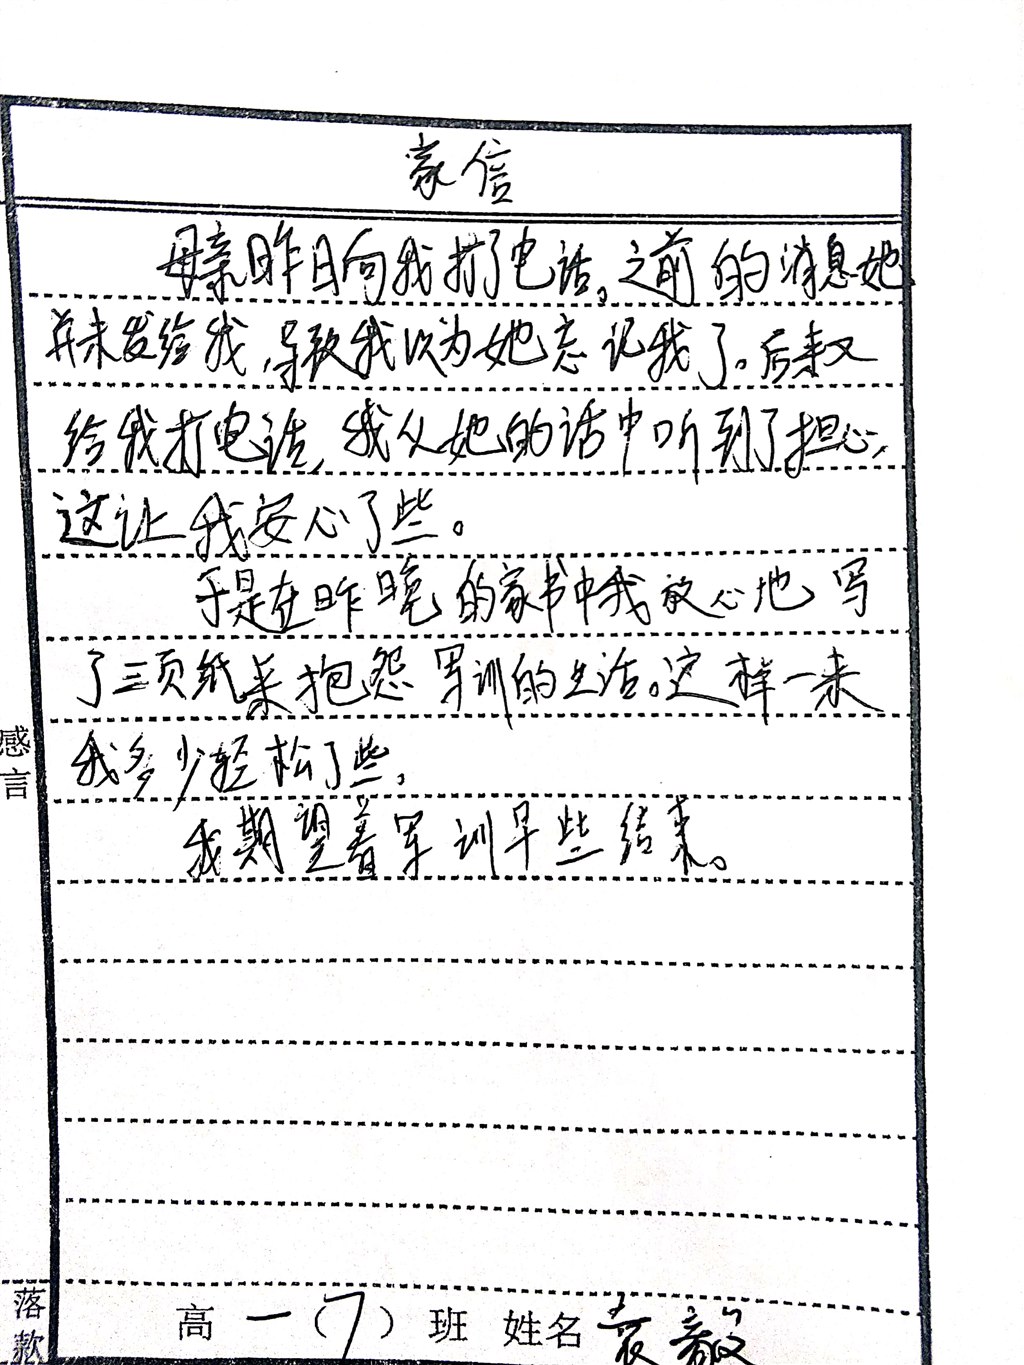 家信
母亲昨日向我打了电话。之前的消息她
并未发给我,导致我以为她忘记我了。后来又
给我打电话,我从她的话中听到了担心,
这让我安心了些。
于是在昨晚的家书中我放心地写
了三页纸来抱怨军训的生活。这样一来
我多少轻松了些。
我期望着军训早些结束。
感言
落款
高一(7)班 姓名袁毅